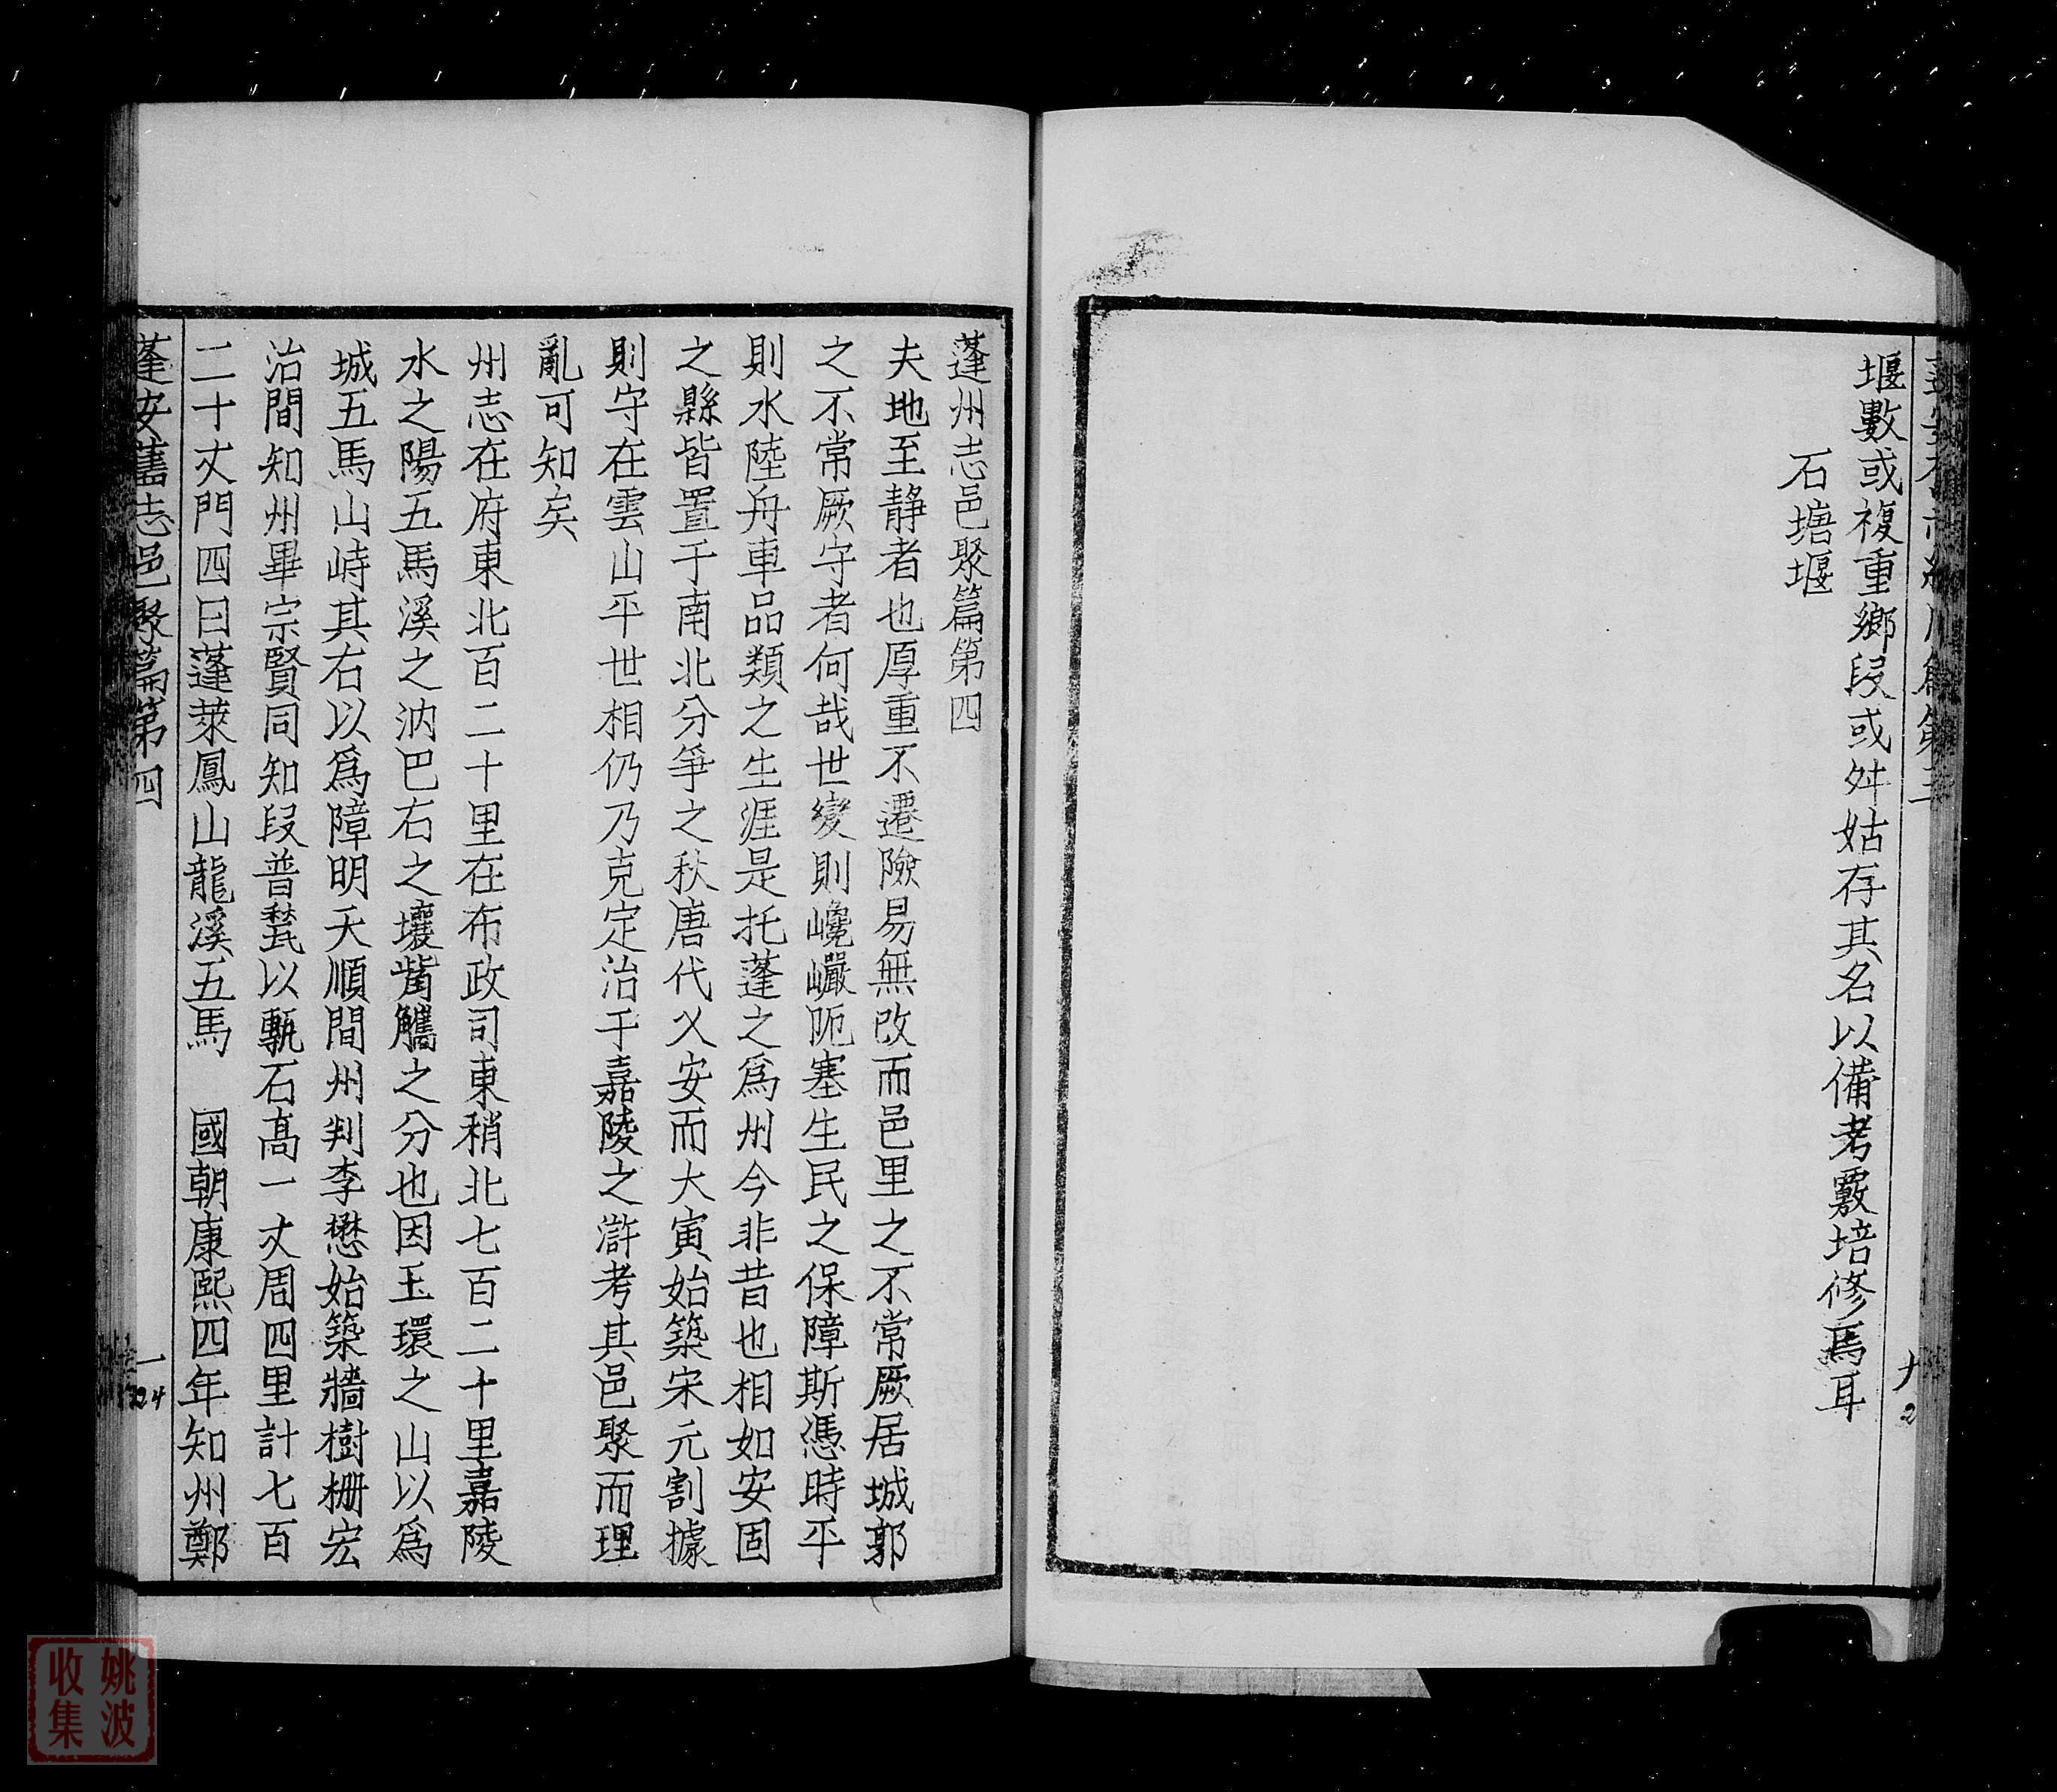 堰數或複重鄉段或舛姑存其名以備考覈培修焉耳
石塘堰
蓬州志邑聚篇第四
夫地至静者也厚重不遷險易無改而邑里之不常厥居城郭
之不常厥守者何哉世變則巉巗阨塞生民之保障斯憑時平
則水陸舟車品類之生涯是托蓬之爲州今非昔也相如安固
之縣皆置于南北分爭之秋唐代乂安而大寅始築宋元割據
則守在雲山平世相仍乃克定治于嘉陵之滸考其邑聚而理
亂可知矣
州志在府東北百二十里在布政司東稍北七百二十里嘉陵
水之陽五馬溪之汭巴右之壤觜觿之分也因玉環之山以爲
城五馬山峙其右以爲障明天順間州判李懋始築牆樹栅宏
治間知州畢宗賢同知段普甃以甎石高一丈周四里計七百
二十丈門四曰蓬萊鳳山龍溪五馬　國朝康熙四年知州鄭
蓬安舊志邑聚篇第四
一
24
姚波
收集